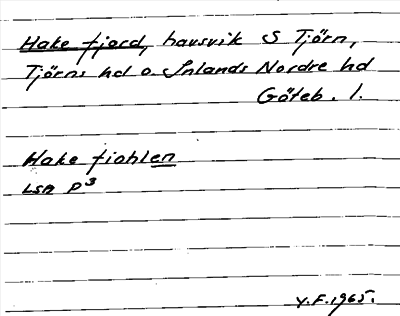 Hake fjord, havsvik S Tjörn,
Tjörns hd o. Inlands Nordre hd
Göteb. l.
Hake fiohlen
LSA P3
Y.F. 1965.